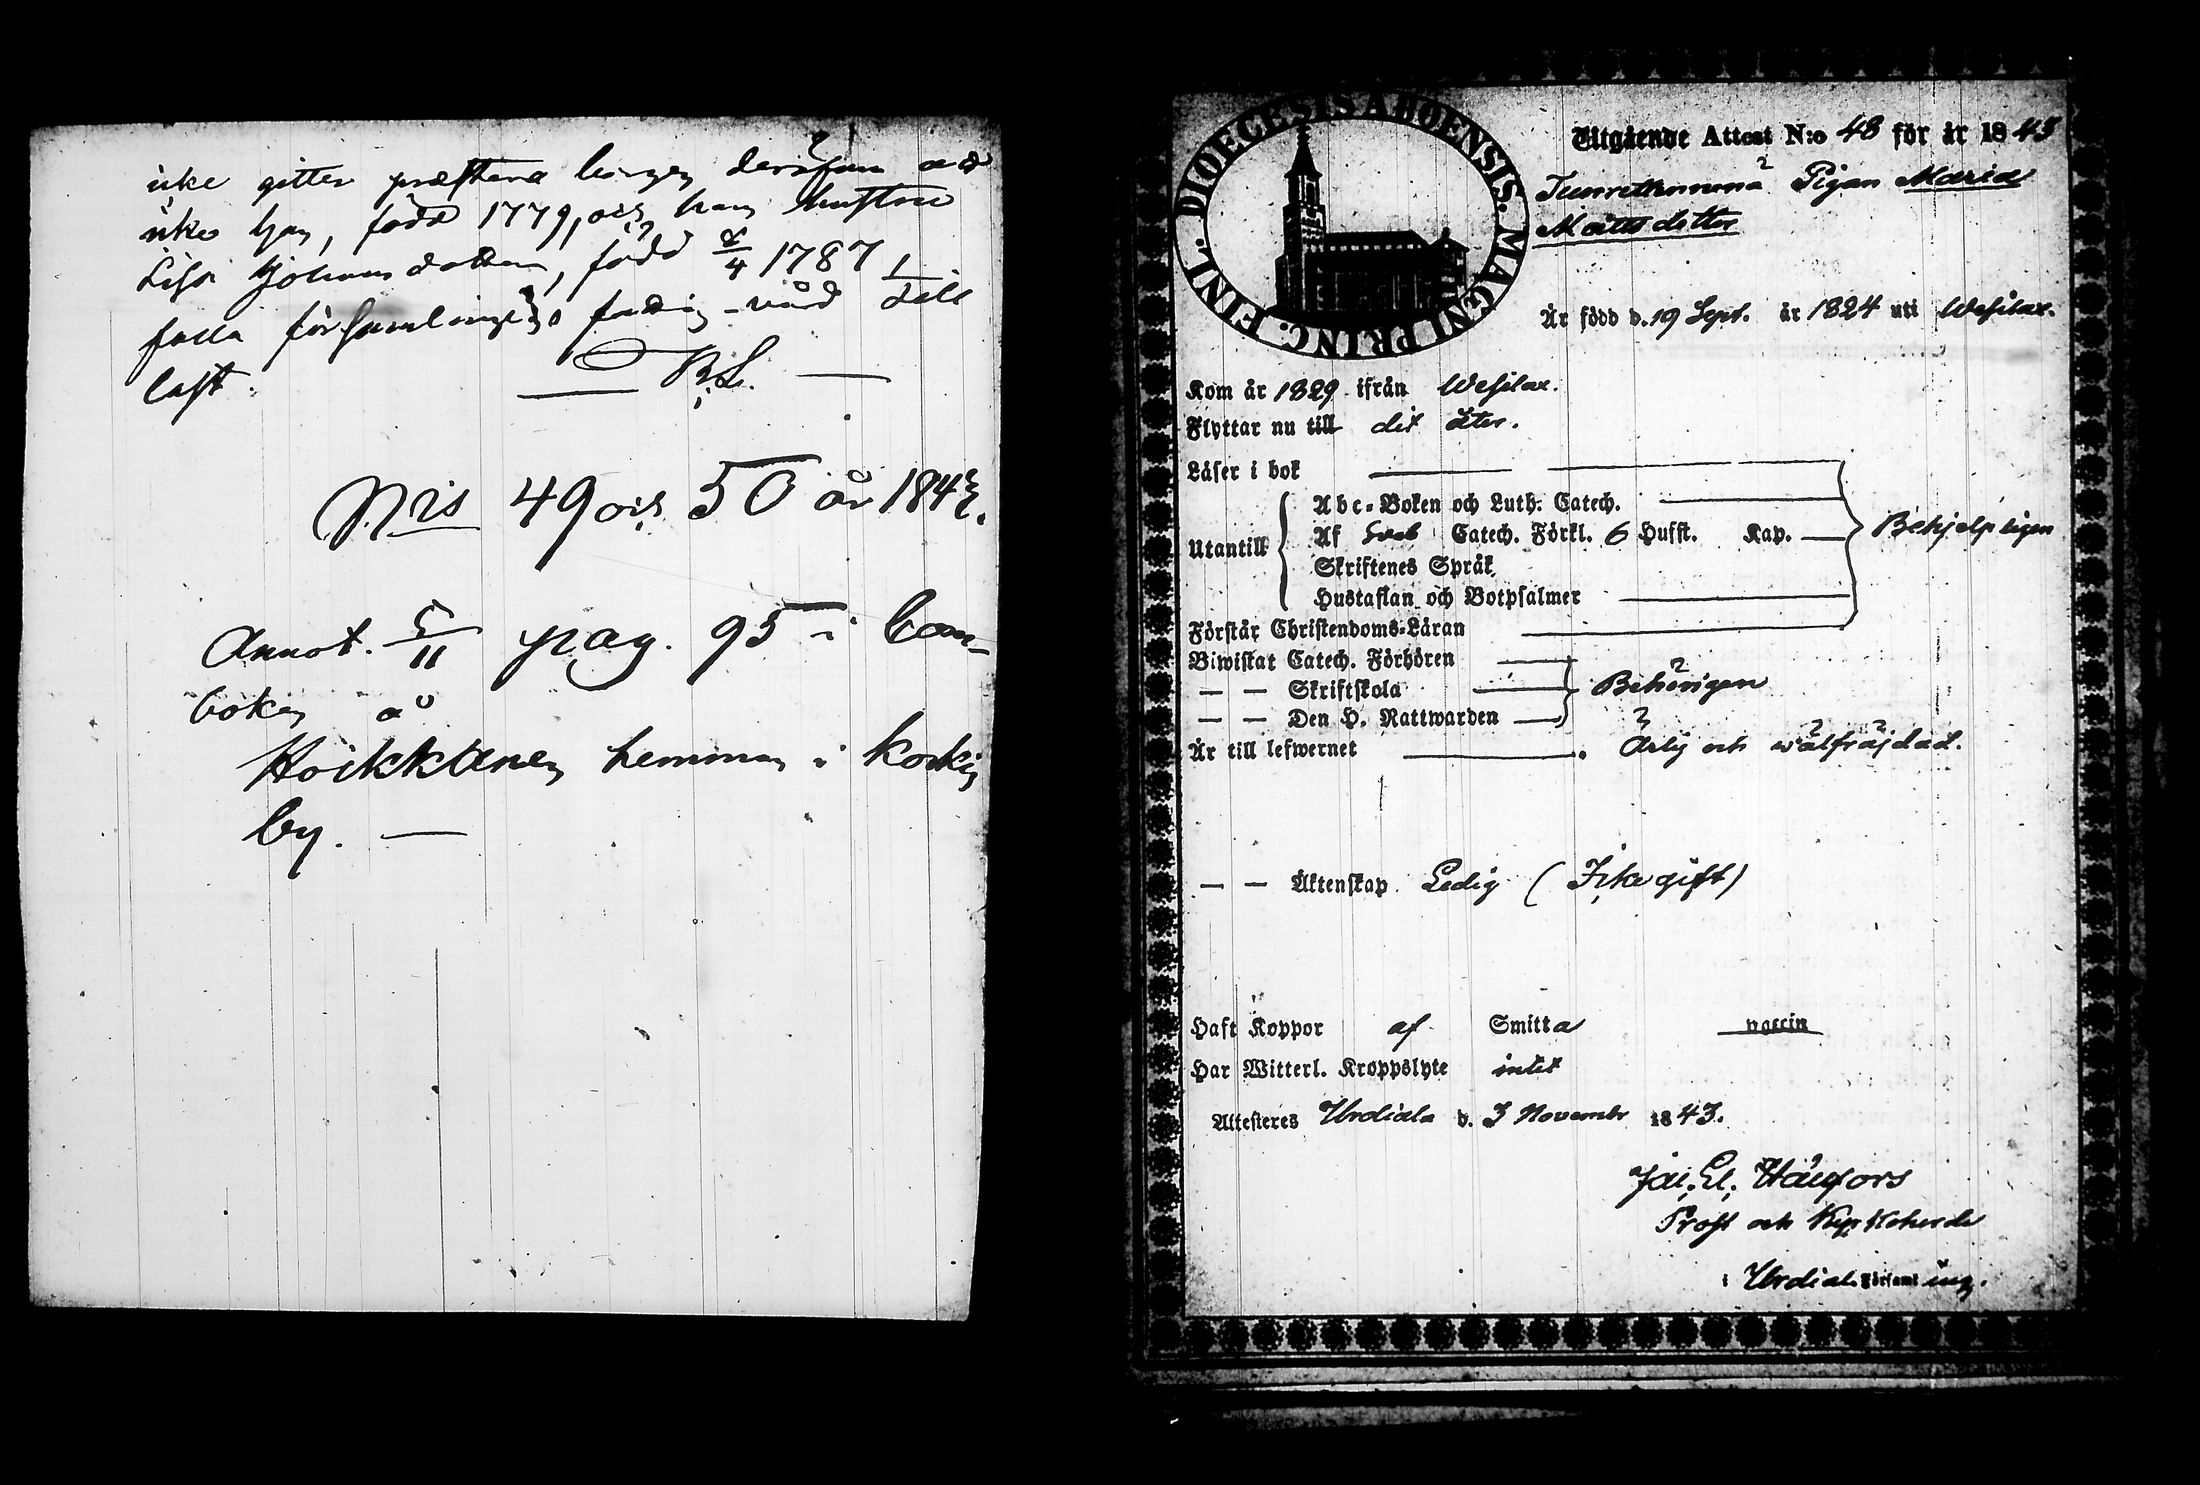 icke gitter præstera borgen derföre att
icke han, född 1779, och hans hustru
Lisa Johansdotter, född 8/4 1787,
falla församlingens fattigvård till
last:
R.S.
Nris 49 och 50 år 1843.
Annot. 5/11 pag. 95 i Com-
boken å
Hoikkanen hemman i Korkis
by.
DIOECESIS ABOENSIS. MAGNI PRINC. FINL.
Utgående Attest N:o 48 för år 1843
Pigan Maria
Mattsdotter
Är född d. 19 Sept. år 1824 uti Wesilax.
Kom år 1829 ifrån Wesilax.
Flyttar nu till dit åter.
Läser i bok
Utantill
Abc-Boken och Luth. Catech.
Af Sveb Catech. Förkl. 6 Hufst. Kap.
Behjelpligen
Skriftenes Språk
Hustaflan och Botpsalmer
Förstår Christendoms-Läran
Biwistat Catech. Förhören
— — Skriftskola
Behörigen
— — Den H. Nattwarden
Är till lefwernet Ärlig och wälfräjdad.
— — Äktenskap Ledig (Icke gift)
Haft Koppor af Smitta vaccin
Har Witterl. Kroppslyte intet
Attesteras Urdiala d. 3 Novembr 1843.
Jac. El. Hällfors
Prost och Kyrkoherde
i Urdiala Församling.